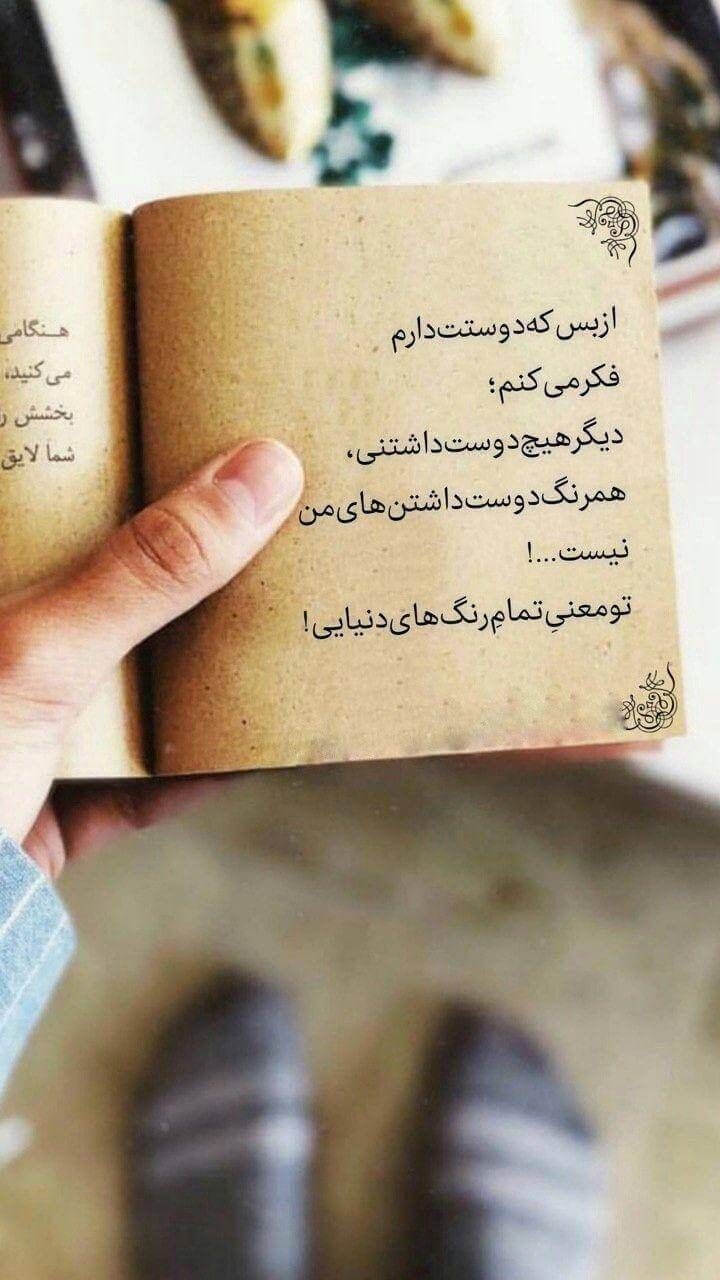 از بس که دوستت دارم
فکر می کنم؛
دیگر هیچ دوست داشتنی،
همرنگ دوست داشتن های من
نیست...!
تو معنیِ تمامِ رنگ های دنیایی!
هـنگامی
می کنید،
بخشش ر
شما لایق